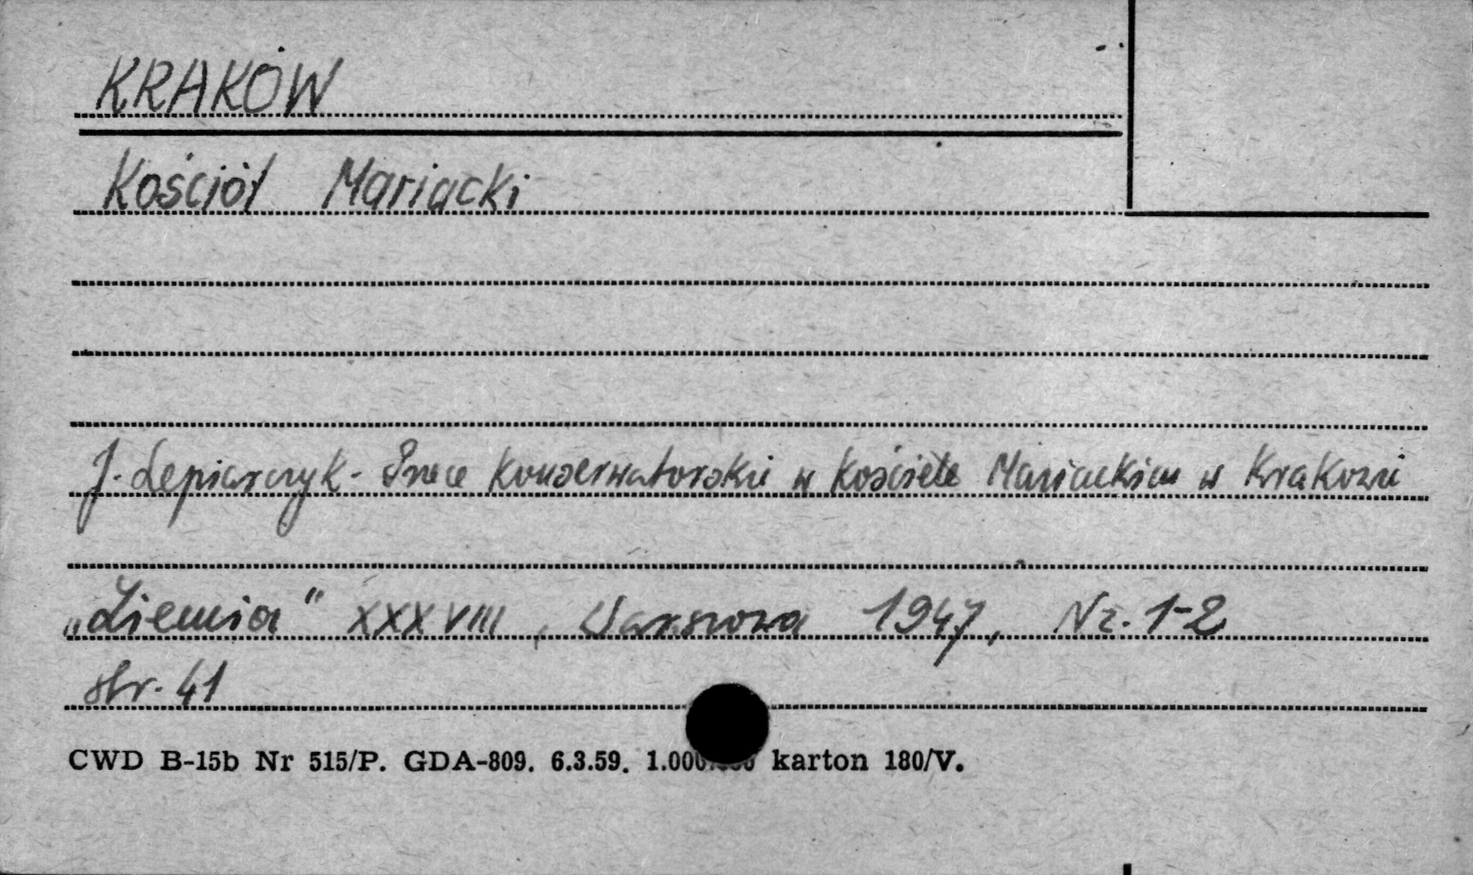 KRAKÓW
Kościół Mariacki
J. Lepiarczyk - Prace konserwatorskie w kościele Mariackim w Krakowie
„Ziemia" XXXVIII, Warszawa 1947, Nr. 1-2
str. 41
CWD B-15b Nr 515/P. GDA-809. 6.3.59. 1.000.000 karton 180/V.